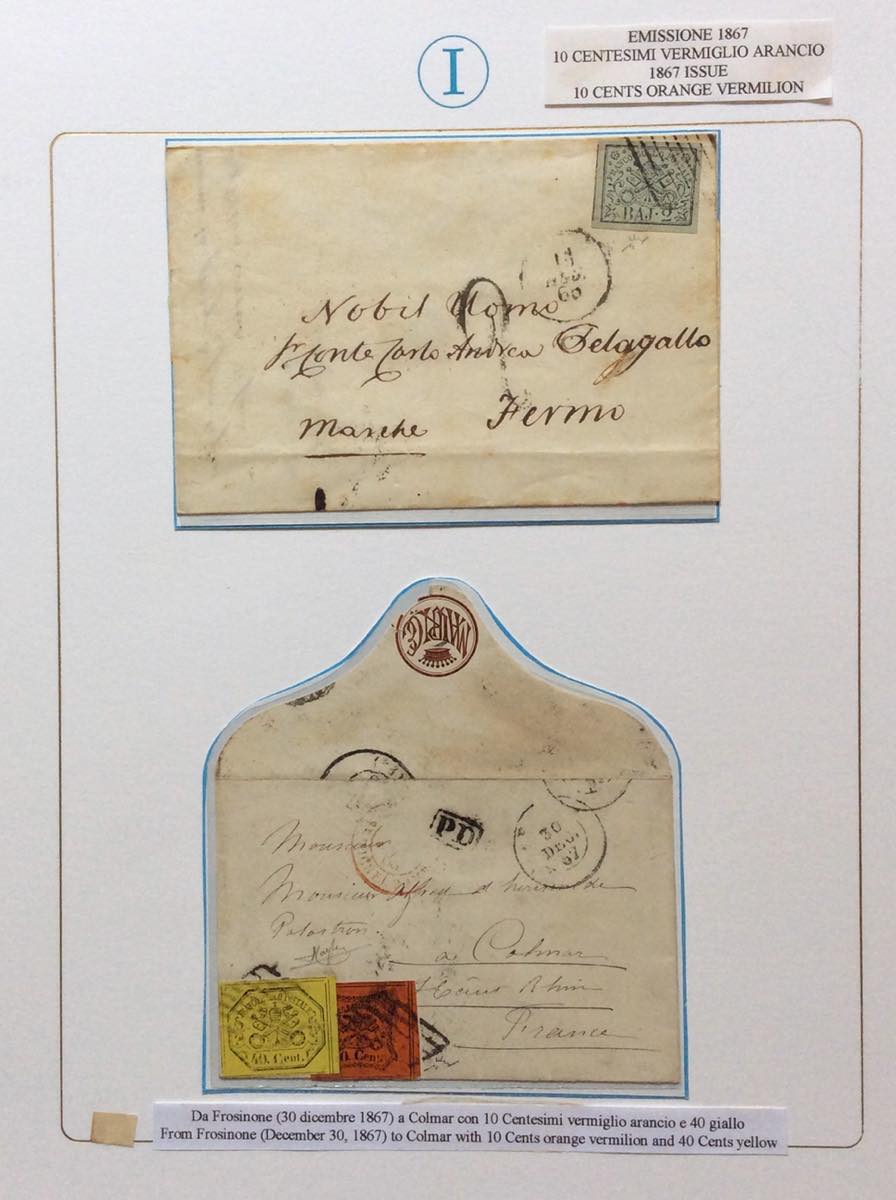 I
EMISSIONE 1867
10 CENTESIMI VERMIGLIO ARANCIO
1867 ISSUE
10 CENTS ORANGE VERMILION
FRANCO
BAJ. 2
2
Nobil Uomo
Sr. Conte Carlo Andrea Pelagallo
Fermo
Marche
PD
30
DEC.
67
Monsieur
Monsieur Alfred d de
Palastron
a Colmar
Haut Rhin
France
40. Cent.
0. Cent
Da Frosinone (30 dicembre 1867) a Colmar con 10 Centesimi vermiglio arancio e 40 giallo
From Frosinone (December 30, 1867) to Colmar with 10 Cents orange vermilion and 40 Cents yellow